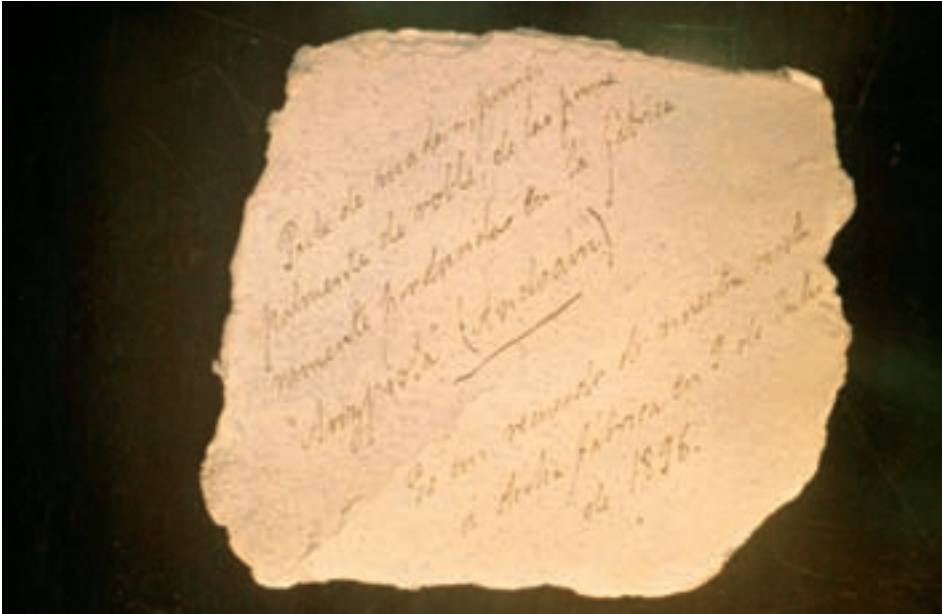 Pasta de madera, princi
palmente de roble, de las prime
ramente producidas en la fábrica
(Andoain)
Es un recuerdo de nuestra visita
á dicha fábrica en 9 de Julio
de 1896.